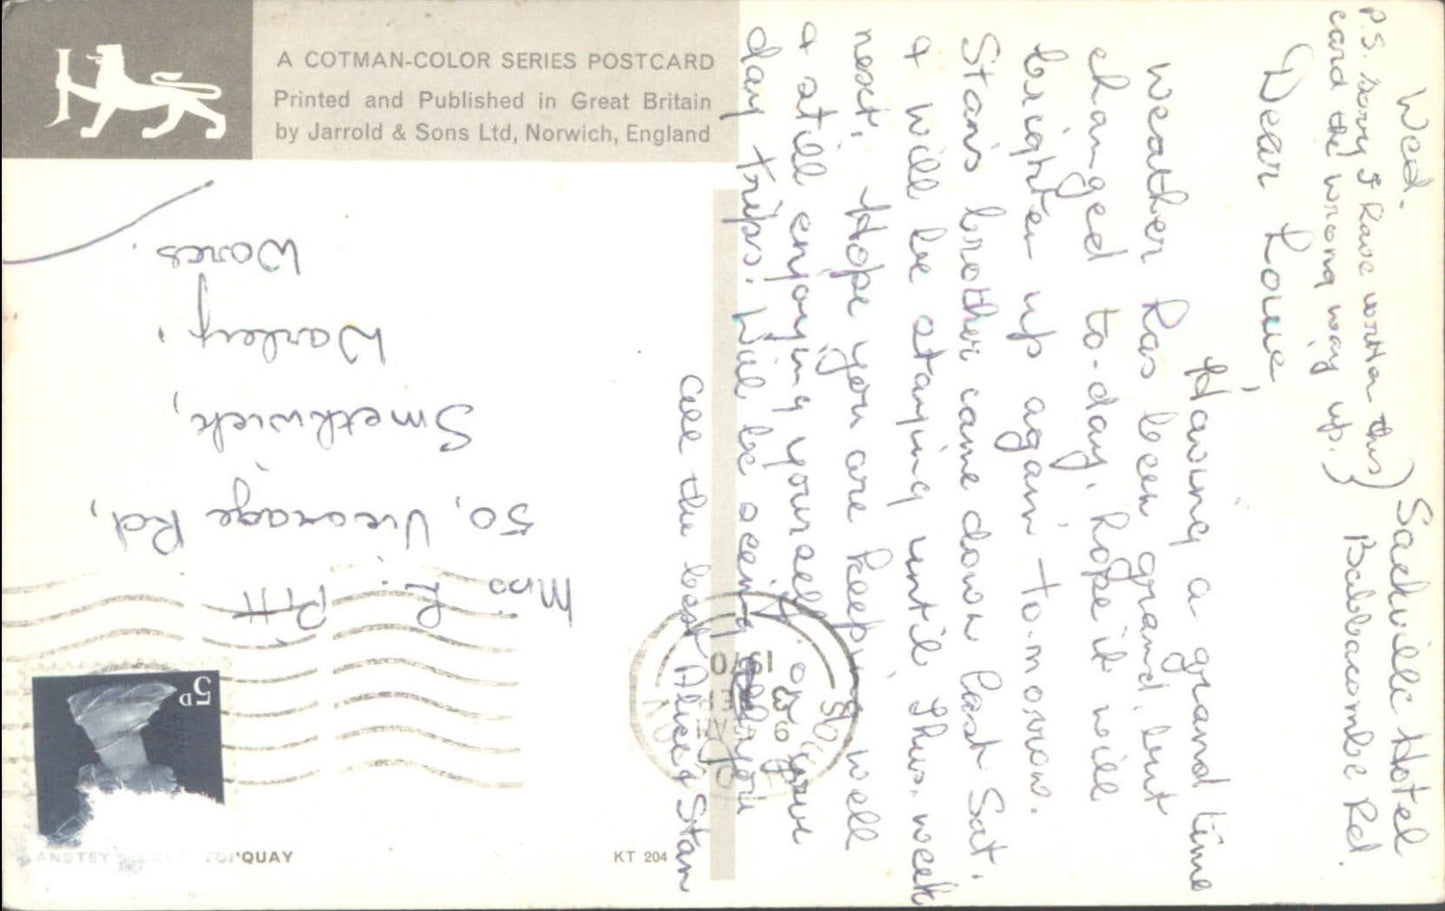 A COTMAN-COLOR SERIES POSTCARD
Printed and Published in Great Britain
by Jarrold & Sons Ltd, Norwich, England
Wed.
P.S. sorry I have written this
card the wrong way up.)
Sackville Hotel
Babbacombe Rd.
Dear Louie,
Having a grand time
weather has been grand, but
changed to-day, hope it will
brighten up again to-morrow.
Stan's brother came down last Sat.
& will be staying until Thurs. week
next, Hope you are keeping well
& still enjoying yourself on your
day trips. Will be seeing you
all the best Alice & Stan
Miss L. Pitt
50, Vicarage Rd,
Smethwick,
Warley,
Worcs.
5D
1970
ANSTEY TORQUAY
KT 204